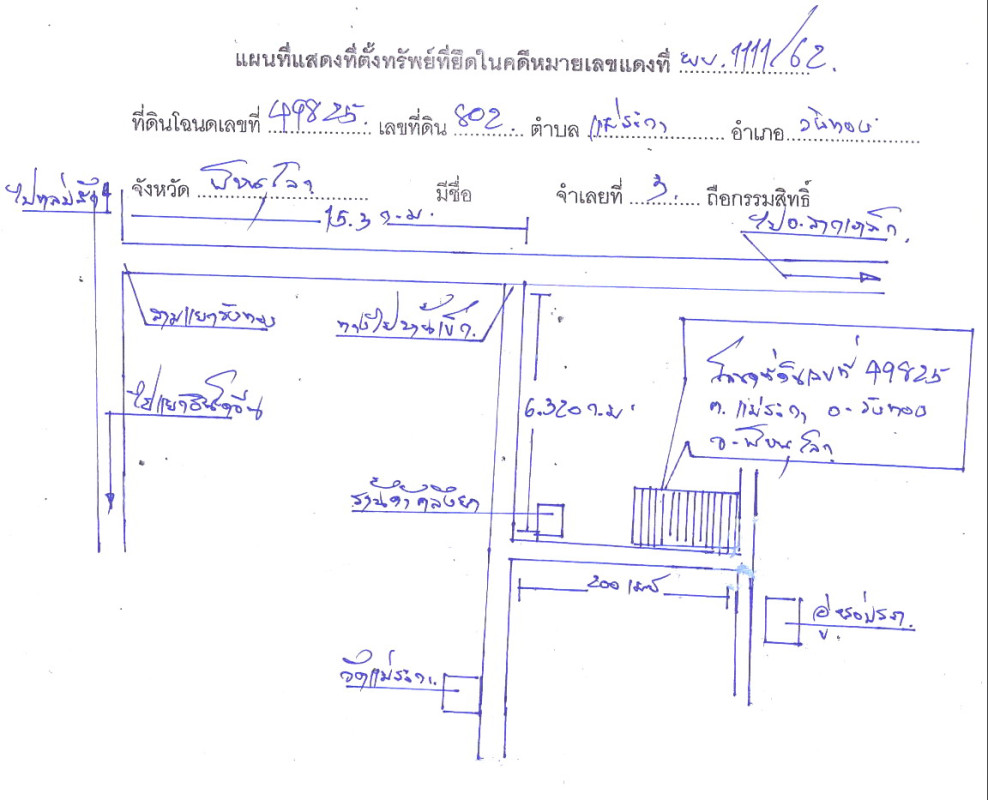 แผนที่แสดงที่ตั้งทรัพย์ที่ยึดในคดีหมายเลขแดงที่ ผบ.1111/62.
ที่ดินโฉนดเลขที่ 49825. เลขที่ดิน 802. ตำบล แม่ระกา อำเภอ วังทอง
จังหวัด พิษณุโลก มีชื่อ จำเลยที่ 3. ถือกรรมสิทธิ์
ไปหล่มสัก
15.3 ก.ม.
สามแยกวังทอง
ไปแยกอินโดจีน
6.320 ก.ม.
โฉนดที่ดินเลขที่ 49825
ต.แม่ระกา อ.วังทอง
จ.พิษณุโลก
ร้านค้า
200 เมตร
วัดแม่ระกา